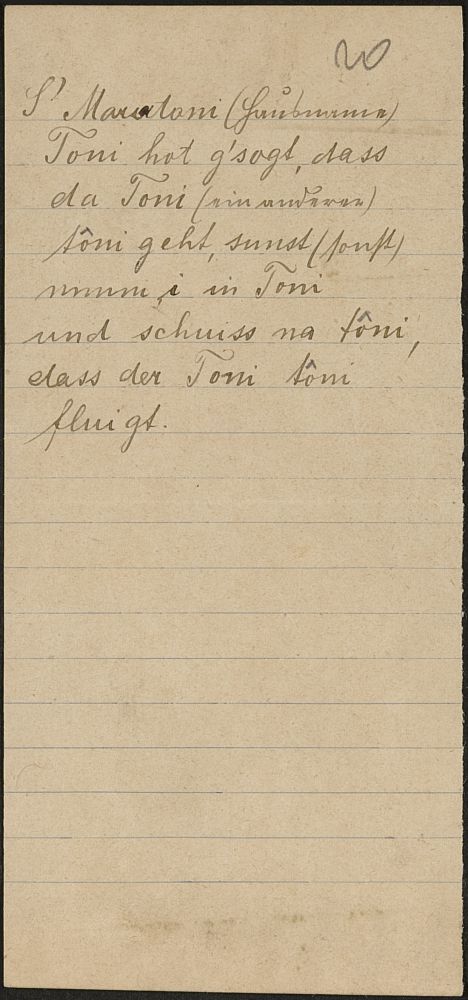 20
S' Maratoni (Hausname)
Toni hot g'sogt, dass
da Toni (ein anderer)
tôni geht, sunst (sonst)
nimm i in Toni
und schuiss na tôni,
dass der Toni tôni
fluigt.